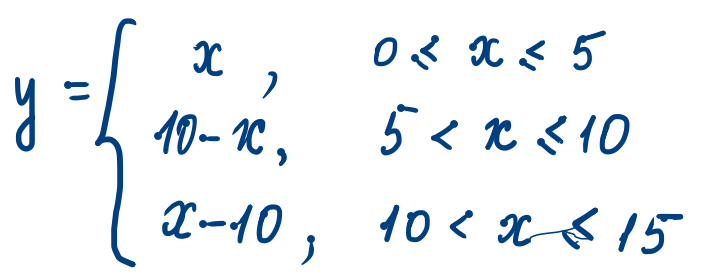 y = { x , 0 ≤ x ≤ 5
10-x, 5 < x ≤ 10
x-10 , 10 < x ≤ 15